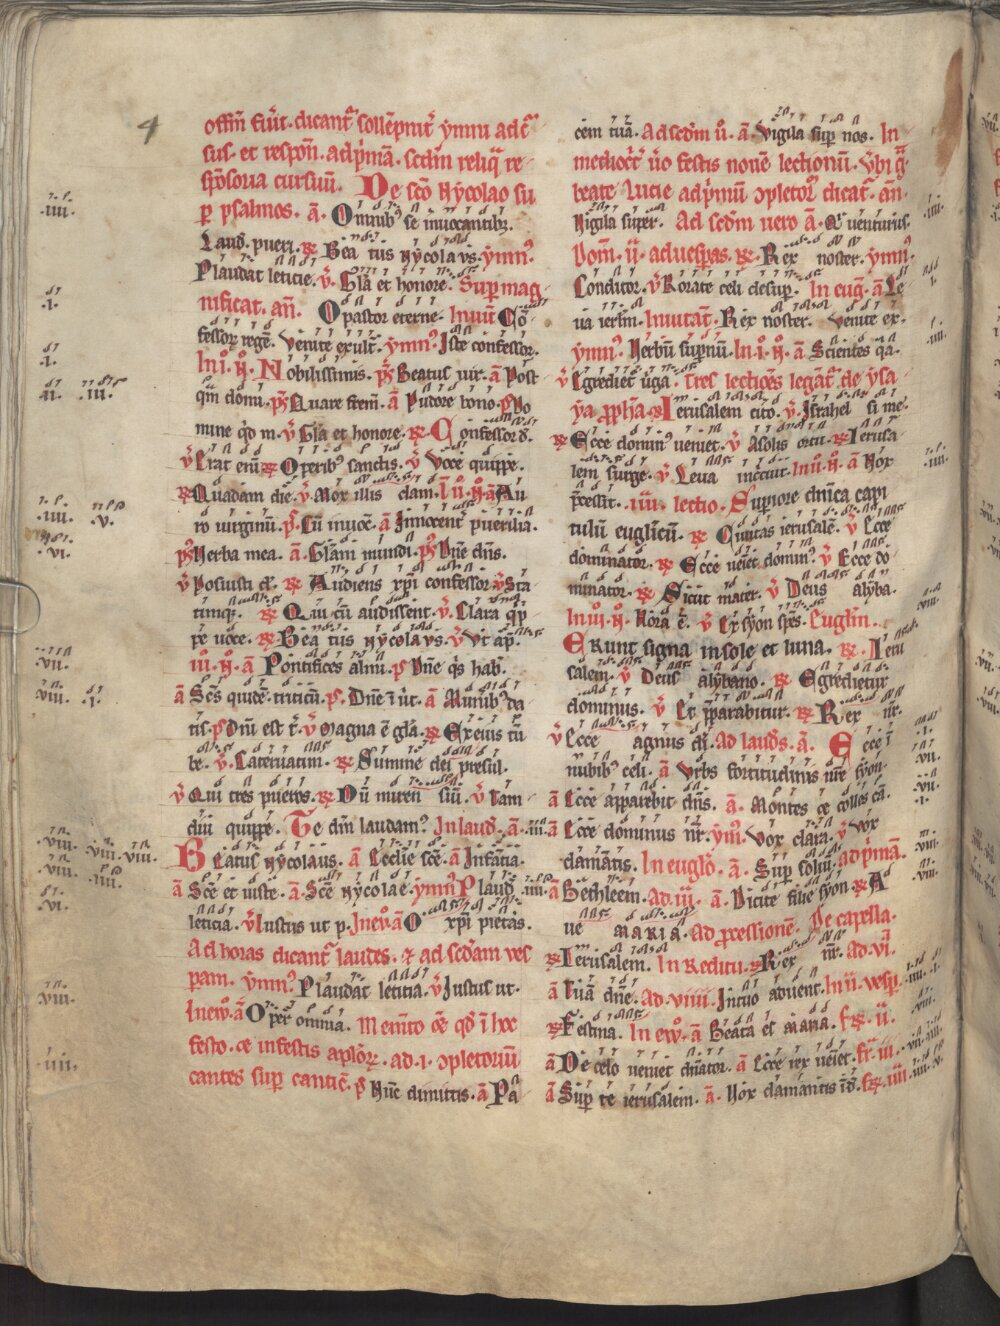 4
offm̄ fuit. dicant᷑ sollēpnit᷑ ymni ad c᷑
sus. et respoñ. ad p̓mā. scdm̄ reliq̄ re
spōsoria cursuū. De sc̄o Nycolao su
ꝑ psalmos. ā. Omnibꝰ se inuocantibꝫ.
Laud. pueri. ℟ Bea tus nycolaus. ymn᷑
Plaudat leticie. ℣ Gl̄a et honore. Sup mag
nificat. añ. O pastor eterne. Inuit Cō
fessoꝝ regē. Venite exult᷑. ymn᷑ Iste confessor.
In .i. N̄. Nobilissimis. ps̄ Beatus uir. ā Post
qm̄ domi. ps̄ Quare frem̄. ā Pudore bono. ps̄ Do
mine qd̄ m. ℣ Gl̄a et honore. ℟ Confessor d̄.
℣ Erat enī ℟ Operibꝰ sanctis. ℣ Voce quippe.
℟ Quadam die. ℣ Mox illis clam. In .ii. N̄ ā Au
ro uirginū. ps̄ Cū inuoc̄. ā Innocent᷑ puerilia.
ps̄ Verba mea. ā. Gl̄am mundi. ps̄ Dn̄e dn̄s.
℣ Posuisti d̄. ℟ Audiens xp̄i confessor ℣ Sta
timqꝫ. ℟ Qui cū audissent. ℣ Clara qp̄
pe uoce. ℟ Bea tus nycolaus. ℣ Vt ap̄.
.iii. N̄. ā Pontifices almi. ps̄ Dn̄e q̓s hab̄.
ā Sc̄s quidē. triticū. ps̄. Dn̄e ī u̓t. ā Munibꝰ da
tis. ps̄ Dn̄i est t᷑. ℣ Magna ē gl̄a. ℟ Ex eius tū
be. ℣. Cateruatim. ℟ Summe dei presul.
℣ Qui tres pueros. ℟ Dū mireri siū. ℣ Iam
diu quippe. Te dm̄ laudamꝰ. In laud. ā.
Beatus Nycolaus. ā Ecclie sc̄e. ā Infātia.
ā Sc̄e et iuste. ā. Sc̄e nycolae. ymn᷑ Plaud
leticia. ℣ Iustus ut p. In eu᷑o. ā O xp̄i pietas.
Ad horas dicant᷑ laudes. ⁊ ad sc̄dam ves
pam. ymn᷑. Plaudat leticia. ℣ Iustus ut.
In eu᷑o. ā Oper̄ omnia. Memīto ōe qd̄ ī hoc
festo. ōe in festis aploꝝ. ad .i. ɔpletoriū
cantes sup cantic̄. ps̄ Nūc dimittis. ā Pa
cem tuā. Ad sedm̄ u᷑. ā. Vigila sup nos. In
mediocr᷑ u᷑o festis nouē lectionū. Vbi q̄
beate Lucie ad p̓mū ɔpletor᷑ dicat᷑. añ.
Vigila super. Ad sedm̄ uero ā. Qⁱ uenturus.
Dom̄. ii. ad uesꝑas. ℟. Rex noster. ymn᷑
Conditor. ℣ Rorate celi desup. In eug̓. ā Le
ua ierl̄m. Inuitat᷑. Rex noster. Venite ex.
ymn᷑ Verbū supnū. In .i. N̄. ā Scientes qa.
℣ Egrediet᷑ uirga. Tres lectiōes legāt᷑ de ysa
ya ꝓpha. ℟ Ierusalem cito. ℣. Israhel si me
℟ Ecce dominꝰ ueniet. ℣ Asolis ortu. ℟ Ierusa
lem surge. ℣. Leua in circuit. In .ii. N̄. ā Nox
p̄cessit. .iiii. lectio. Supiore dn̄ica capi
tulū euglicū. ℟ Ciuitas ierusalē. ℣ Ecce
dominator. ℟ Ecce ueniet dominꝰ. ℣ Ecce do
minator. ℟ Sicut mater. ℣ Deus alyba.
In .iii. N̄. Hora ē. ℣ Ex syon spēs. Euglm̄.
Erunt signa in sole et luna. ℟. Ieru
salem. ℣ Deus alybano. ℟ Egredietur
dominus. ℣ Et p̄parabitur. ℟ Rex nr̄.
℣ Ecce agnus di᷑. Ad laudes. ā. Ecce ī
nubibꝰ celi. ā Vrbs fortitudinis nr̄e syon.
ā Ecce apparebit dn̄s. ā. Montes ōe colles cā.
ā Ecce dominus nr̄. ym᷑. Vox clara. ℣ Vox
clamātis. In euglo᷑. ā. Sup soliū. ad p̓mā.
ā Bethleem. Ad .iii. ā. Dicite filie syon. ℟ A
ue MARIA. Ad ꝓcessionē. De capella.
℟ Ierusalem. In Reditu. ℟ Rex nr̄. Ad .vi.
ā Tuā dn̄e. Ad .viiii. Intuo aduent. In .ii. vesp.
℟ Festina. In eu᷑o. ā Beata es maria. Fr̄. ii.
ā De celo ueniet dn̄ator. ā Ecce rex ueniet. fr̄. iii.
ā Sup te ierusalem. ā. Vox clamantis ī d̄. fr̄. iiii